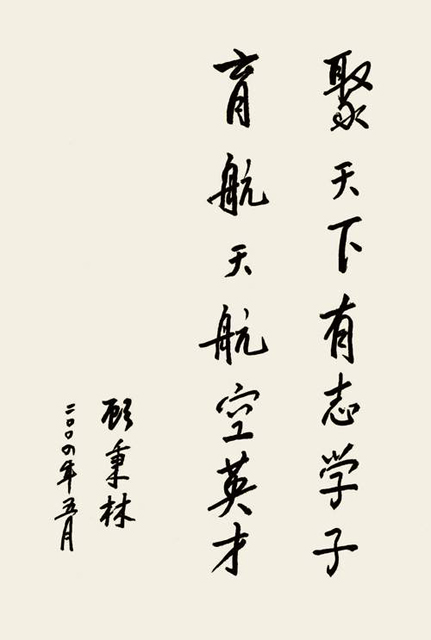 聚天下有志学子
育航天航空英才
顾秉林
二〇〇四年五月